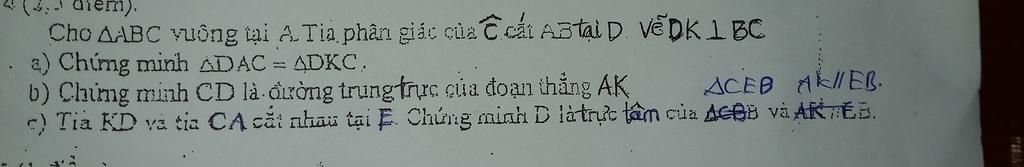 4 (2,5 điểm).
Cho ΔABC vuông tại A. Tia phân giác của Ĉ cắt AB tại D. Vẽ DK ⊥ BC
a) Chứng minh ΔDAC = ΔDKC.
b) Chứng minh CD là đường trung trực của đoạn thẳng AK ΔCEB AK//EB.
c) Tia KD và tia CA cắt nhau tại E. Chứng minh D là trực tâm của và